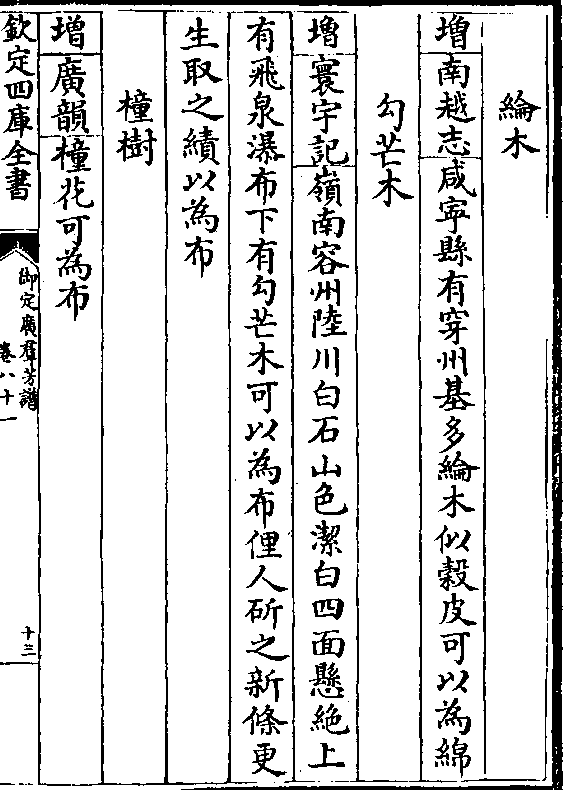 綸木
增南越志咸寧縣有穿州基多綸木似穀皮可以為綿
勾芒木
增寰宇記嶺南容州陸川白石山色潔白四面懸絶上
有飛泉瀑布下有勾芒木可以為布俚人斫之新條更
生取之績以為布
橦樹
增廣韻橦花可為布
欽定四庫全書
御定廣群芳譜
卷八十一
十三